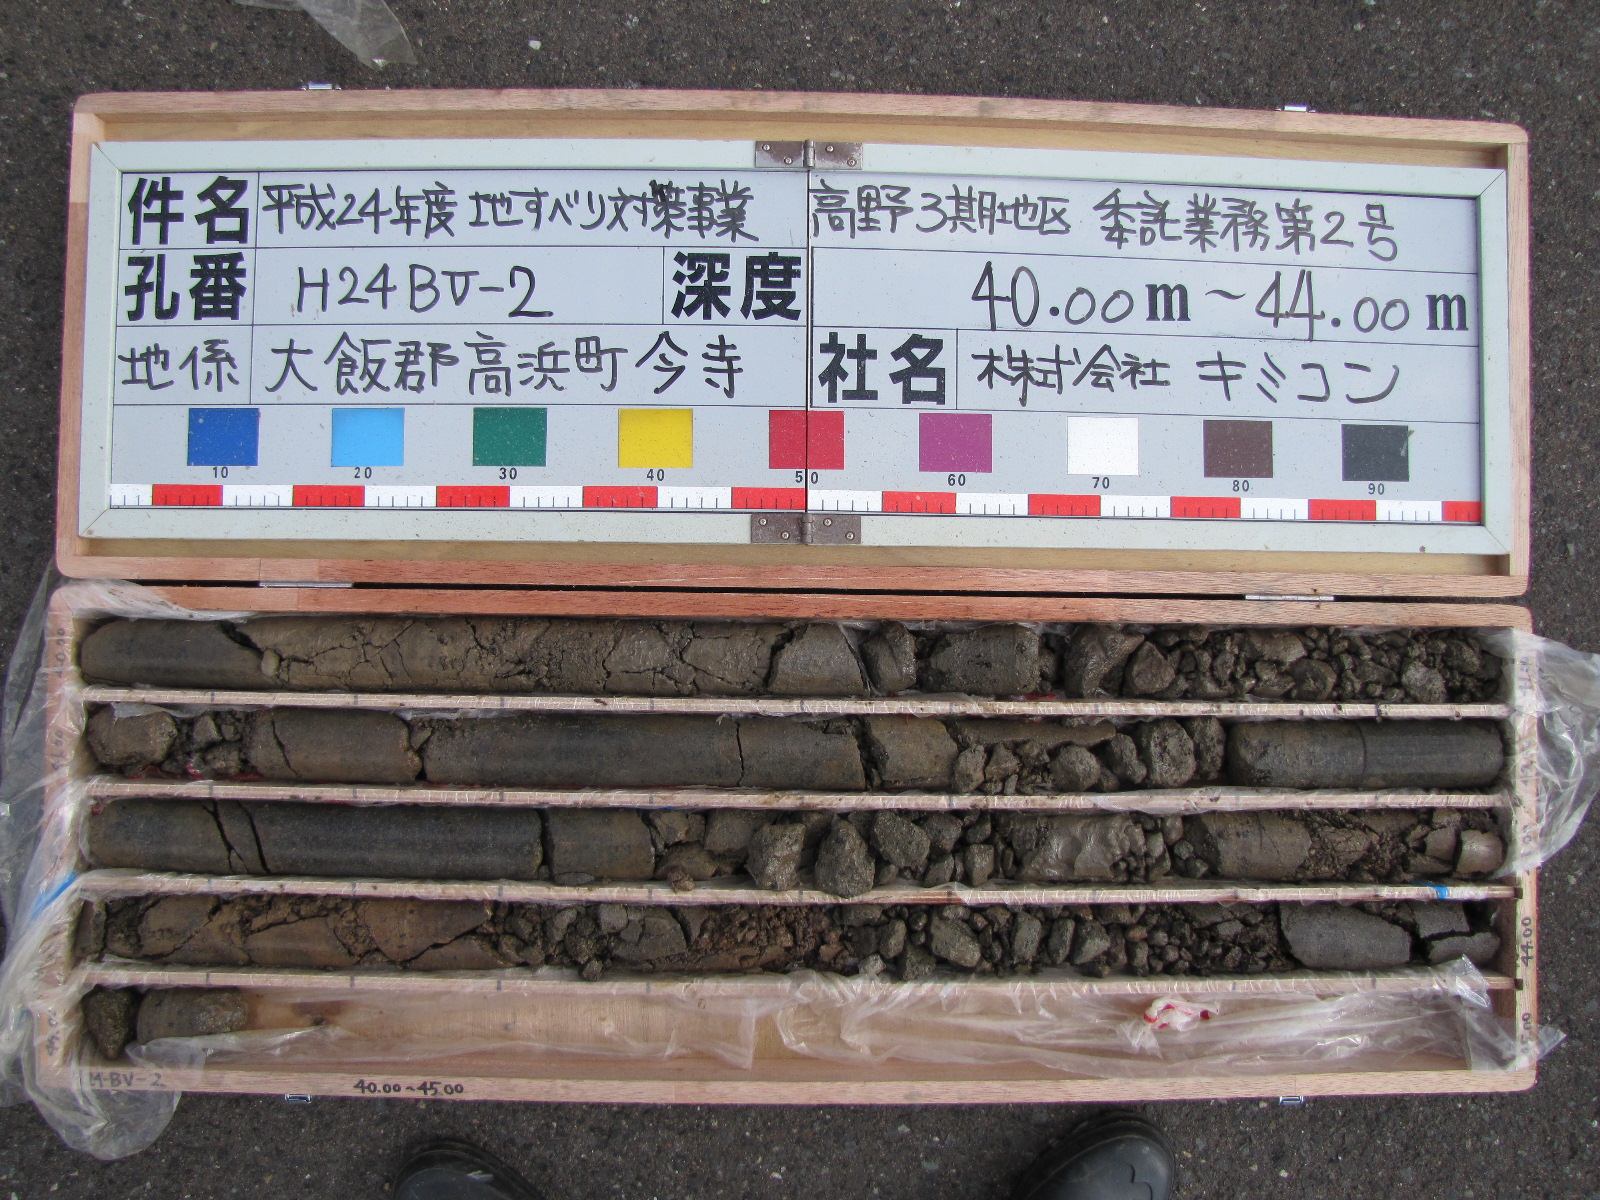 件名 平成24年度 地すべり対策事業 高野3期地区 委託業務第2号
孔番 H24BV-2 深度 40.00m～44.00m
地係 大飯郡高浜町今寺 社名 株式会社 キミコン
10 20 30 40 50 60 70 80 90
44.00
24-BV-2 40.00~45.00